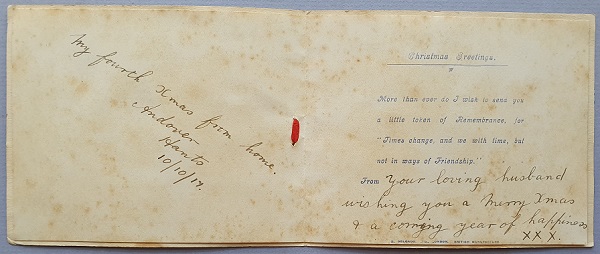 My fourth Xmas from home.
Andover
Hants
10/10/17.
Christmas Greetings.
More than ever do I wish to send you
a little token of Remembrance, for
"Times change, and we with time, but
not in ways of Friendship."
From Your loving husband
wishing you a Merry Xmas
& a coming year of happiness
XXX.